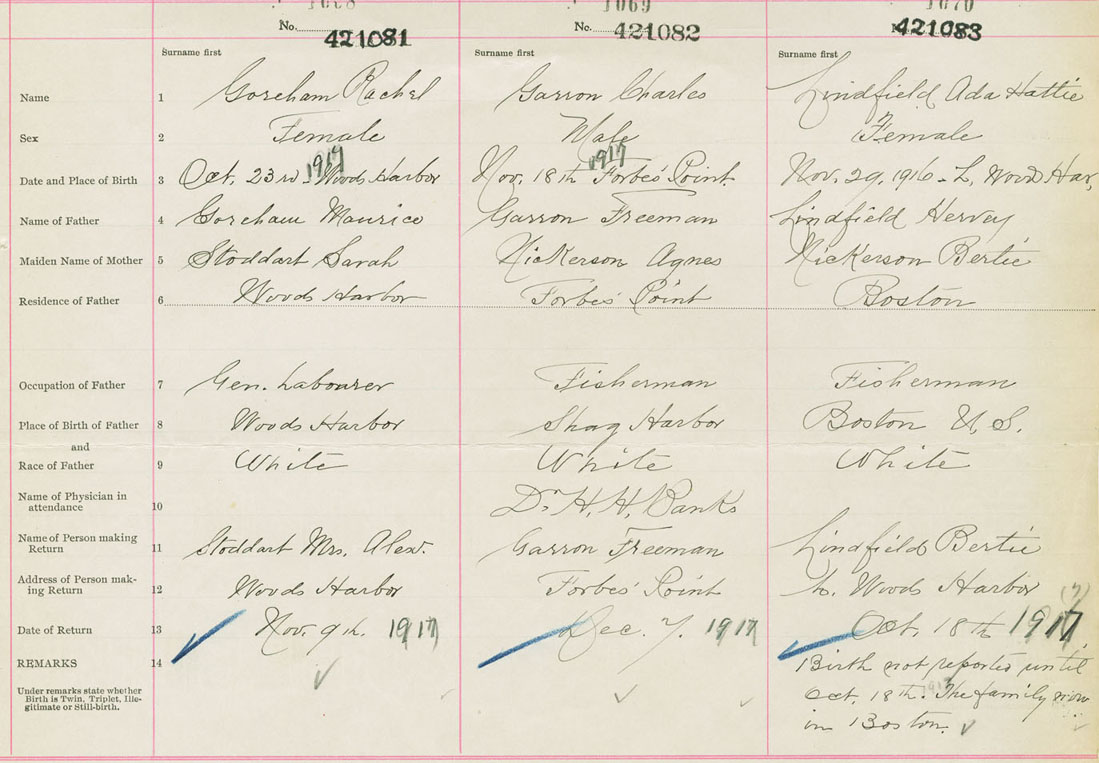 1069 1070
No. 421081 No. 421082 421083
Surname first Surname first Surname first
Name 1 Goreham Rachel Garron Charles Lindfield Ada Hattie
Sex 2 Female Male Female
1917 1917
Date and Place of Birth 3 Oct. 23rd - Woods Harbor Nov. 18th Forbes' Point. Nov. 29, 1916 - L. Wood Har,
Name of Father 4 Goreham Maurice Garron Freeman Lindfield Hervey
Maiden Name of Mother 5 Stoddart Sarah Nickerson Agnes Nickerson Bertie
Residence of Father 6 Woods Harbor Forbes' Point Boston
Occupation of Father 7 Gen. Labourer Fisherman Fisherman
Place of Birth of Father 8 Woods Harbor Shag Harbor Boston U.S.
and
Race of Father 9 White White White
Name of Physician in
attendance 10 Dr H. H. Banks
Name of Person making
Return 11 Stoddart Mrs. Alex. Garron Freeman Lindfield Bertie
Address of Person mak-
ing Return 12 Woods Harbor Forbes' Point L. Woods Harbor
(7)
Date of Return 13 Nov. 9th. 1917 Dec. 7. 1917 Oct. 18th 1917
REMARKS 14 Birth not reported until
Under remarks state whether
Birth is Twin, Triplet, Ille-
gitimate or Still-birth.
Oct. 18th. 1917 The family now
in Boston.